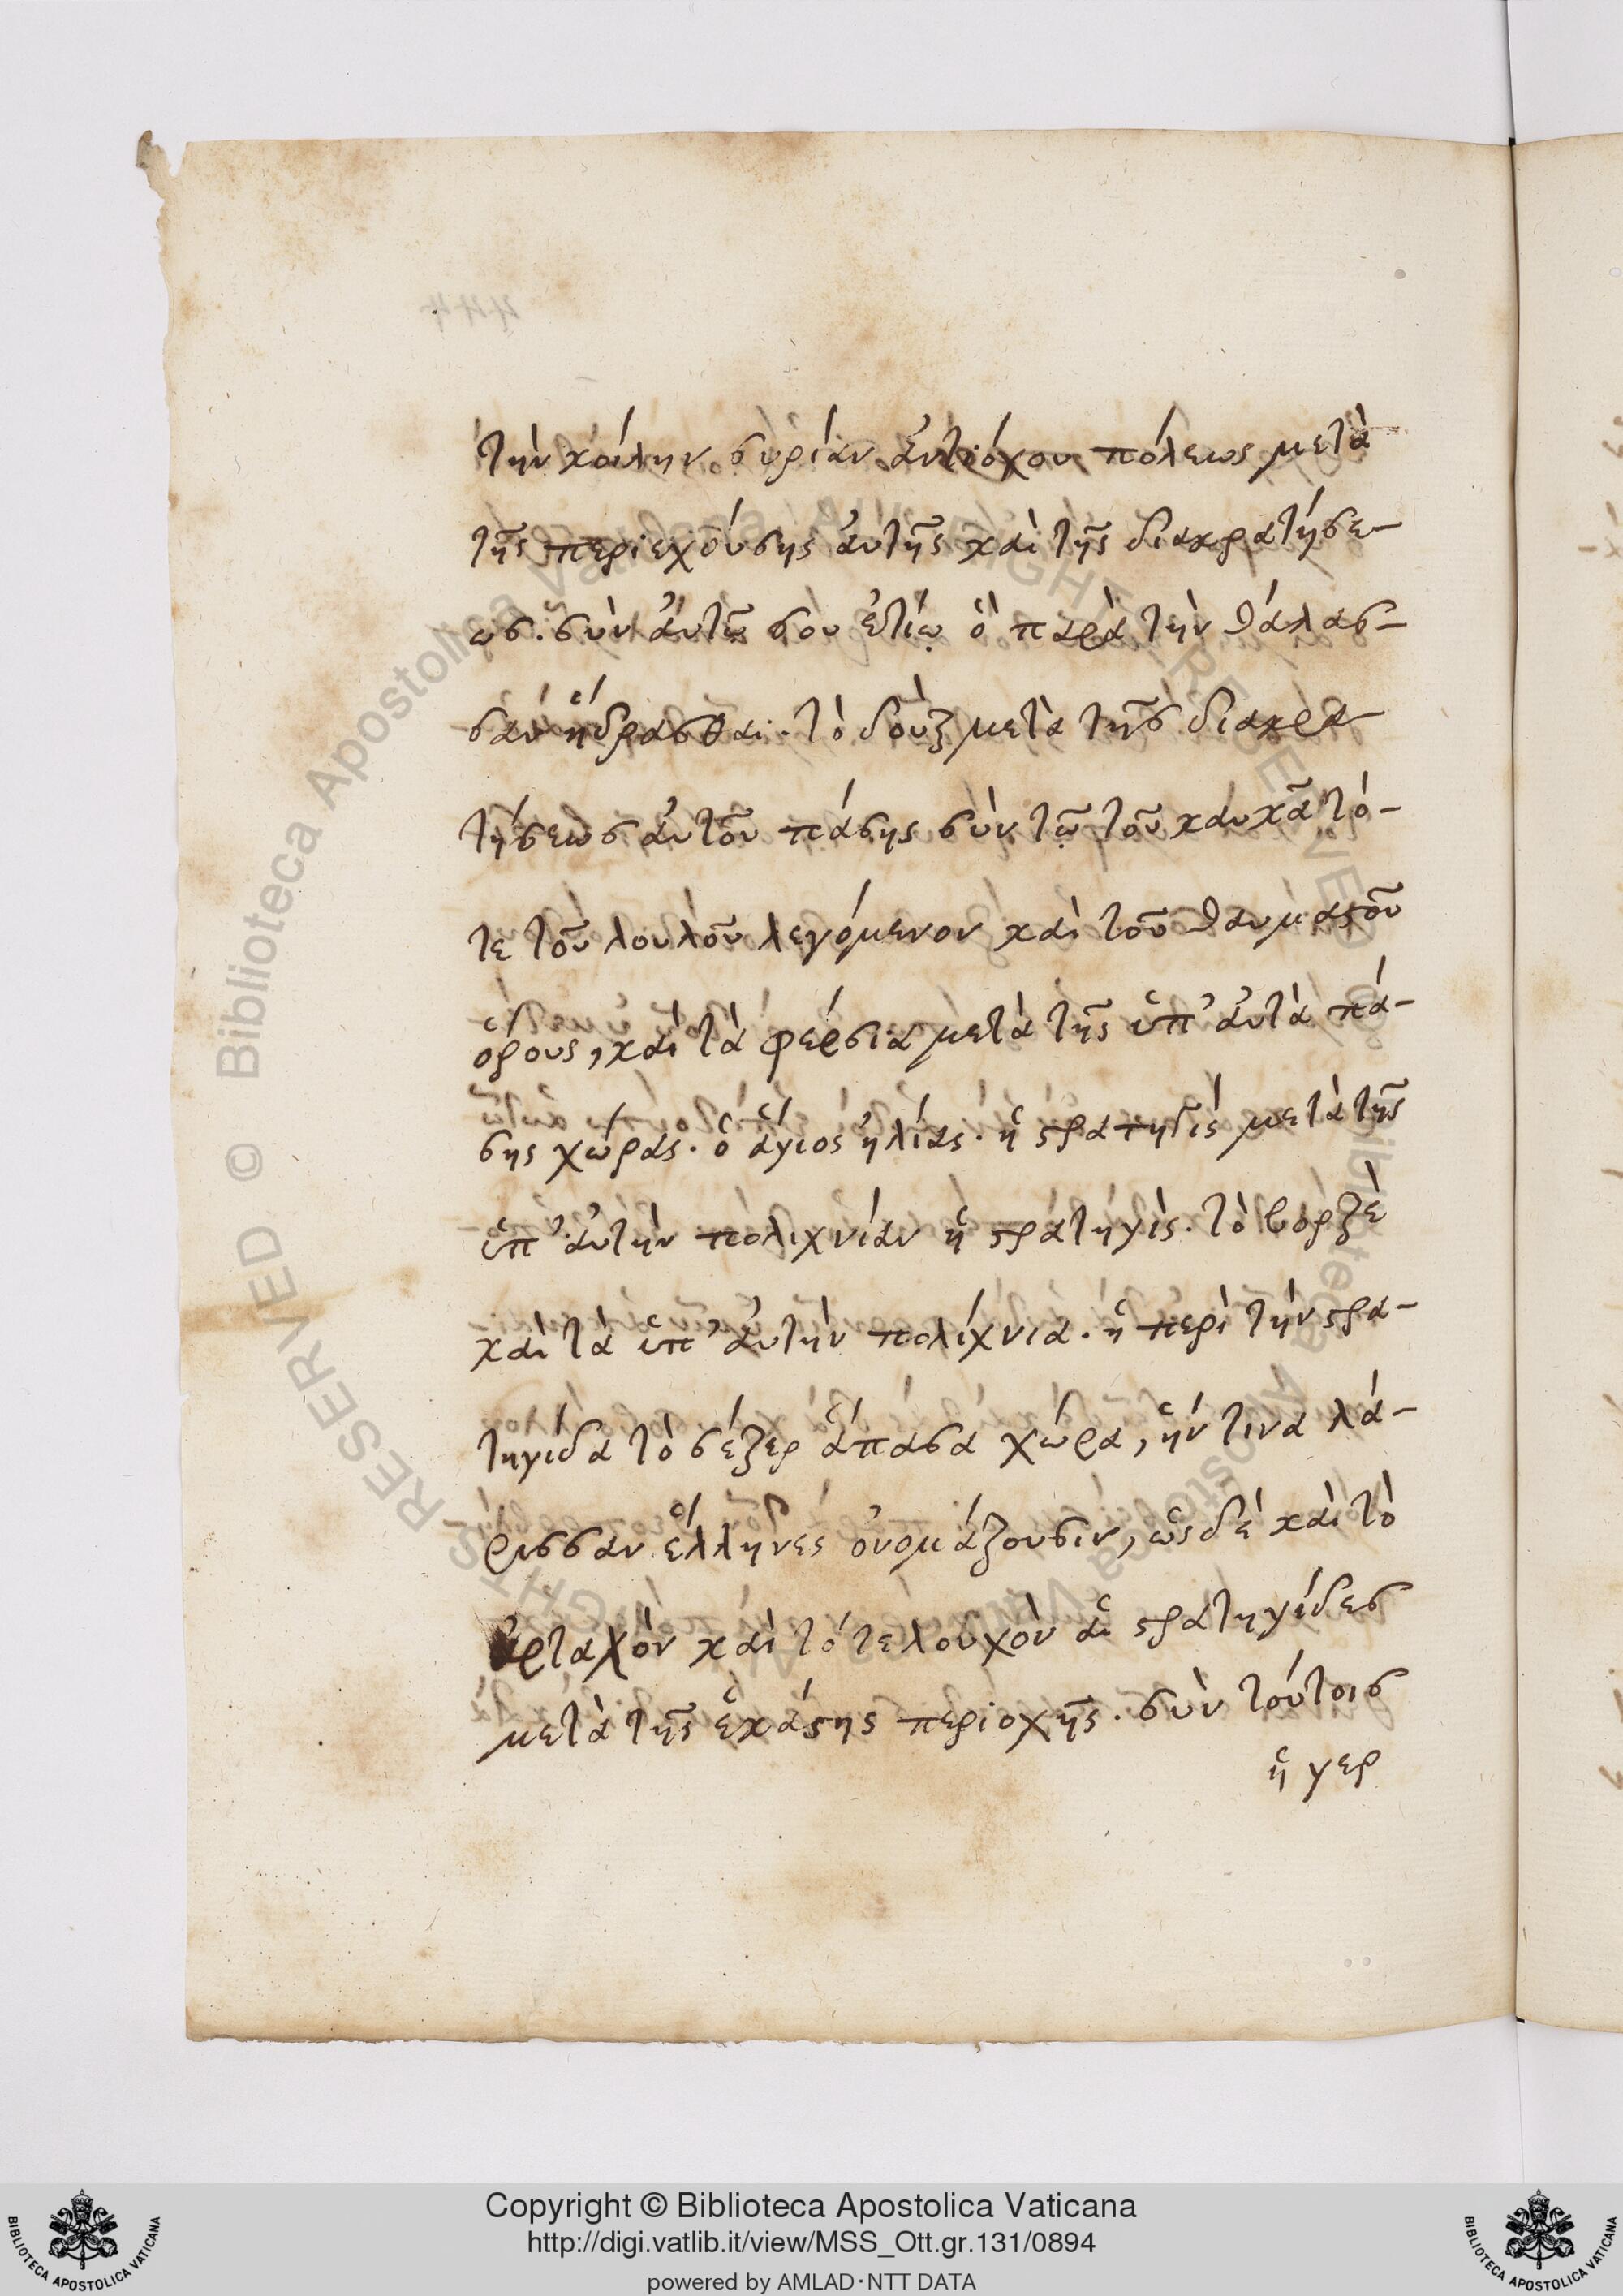 τὴν κοίλην συρίαν ἀντιόχου πόλεως μετὰ
τῆς περιεχούσης ἀυτῆς καὶ τῆς διακρατήσε-
ως. σὺν ἀυτῶ σου ἐτίω ὁ παρὰ τὴν θάλασ-
σαν ἥδρασθαι. τὸ δοὺξ μετὰ τῆς διακρα-
τήσεως ἀυτοῦ πάσης σὺν τῶ τοῦ καυκᾶ τό-
τε τοῦ λουλοῦ λεγόμενον καὶ τοῦ θαυμαστοῦ
ὅρους, καὶ τὰ φέρσια μετὰ τῆς ὑπ' ἀυτὰ πά-
σης χώρας. ὁ ἅγιος ἠλίας. ἡ στρατηγὶς μετὰ τῆς
ὑπ' ἀυτὴν πολιχνίαν ἡ στρατηγὶς. τὸ βορζὲ
καὶ τὰ ὑπ' ἀυτὴν πολίχνια. ἡ περὶ τὴν στρα-
τηγίδα τὸ σέζερ ἅπασα χώρα, ἥν τινα λά-
ρισσαν ἕλληνες ὀνομάζουσιν, ὡς δὲ καὶ τὸ
ἀρταχὸν καὶ τὸ τελουχὸν ἁι στρατηγίδες
μετὰ τῆς ἑκάστης περιοχῆς. σὺν τούτοις
ἡ γερ
Copyright © Biblioteca Apostolica Vaticana
http://digi.vatlib.it/view/MSS_Ott.gr.131/0894
powered by AMLAD·NTT DATA
BIBLIOTECA APOSTOLICA VATICANA
BIBLIOTECA APOSTOLICA VATICANA